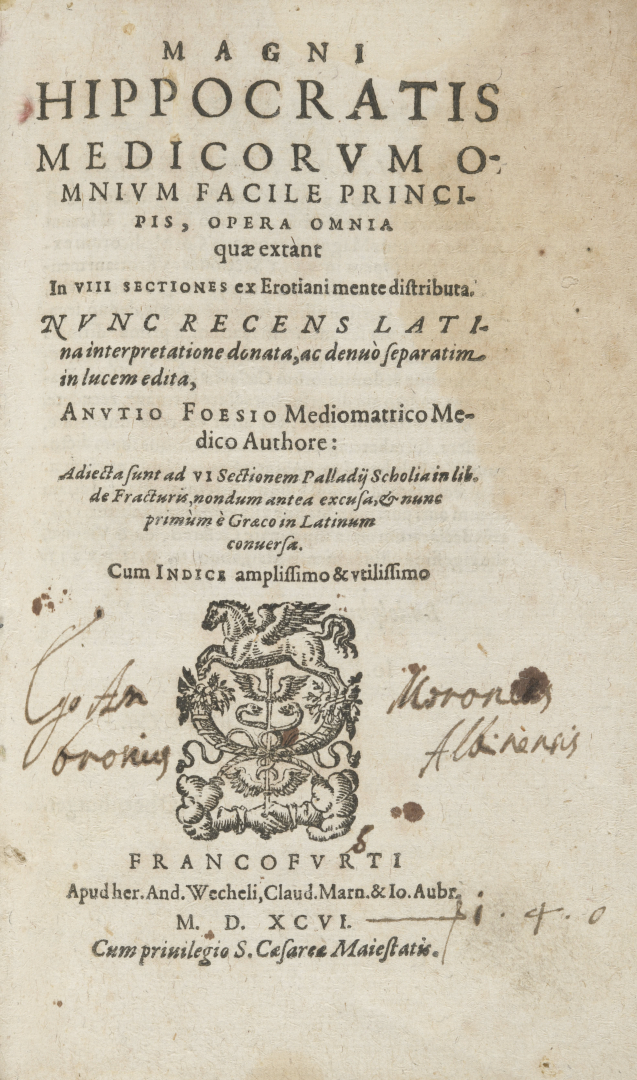 MAGNI
HIPPOCRATIS
MEDICORVM O-
MNIVM FACILE PRINCI-
PIS, OPERA OMNIA
quæ extànt
In VIII SECTIONES ex Erotiani mente distributa.
NVNC RECENS LATI-
na interpretatione donata, ac denuò separatim
in lucem edita,
ANVTIO FOESIO Mediomattrico Me-
dico Authore:
Adiecta sunt ad VI Sectionem Palladij Scholia in lib.
de Fracturis, nondum antea excusa, & nunc
primùm è Græco in Latinum
conuersa.
Cum INDICE amplissimo & vtilissimo
Go Am
bronius
Moronus
Albinensis
FRANCOFVRTI
Apud her. And. Wecheli, Claud. Marn. & Io. Aubr.
M. D. XCVI. — 1. 4. 0
Cum priuilegio S. Cæsareæ Maiestatis.